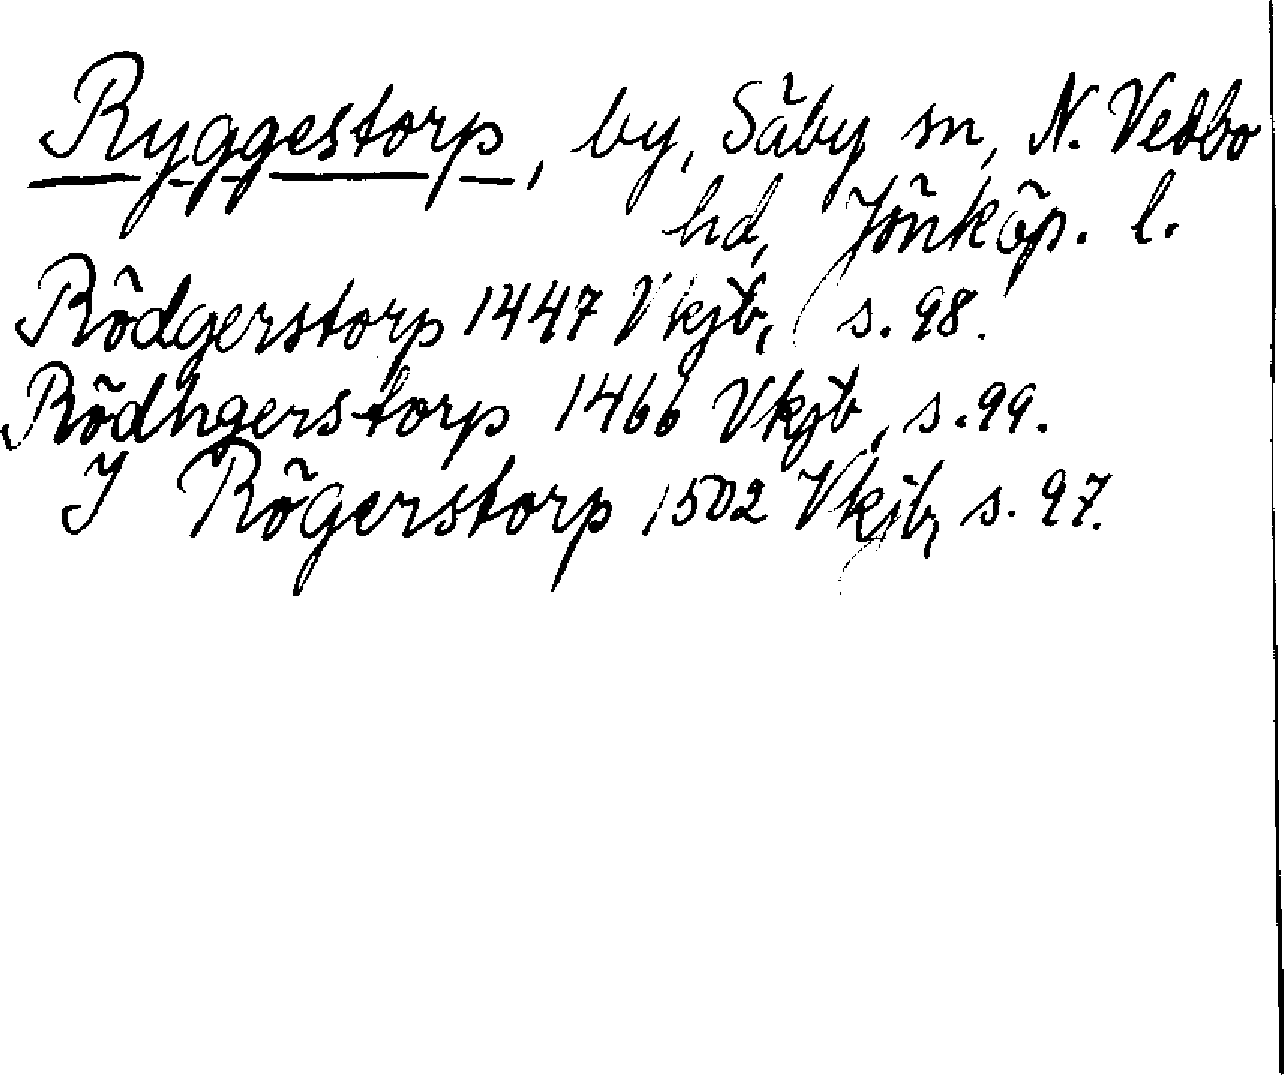 Ryggestorp, by, Säby sn, N. Vedbo
hd, Jönköp. l.
Rödgerstorp 1447 Vkjb, s. 98.
Rödhgerstorp 1466 Vkjb, s. 99.
I Rögerstorp 1502 Vkjb, s. 97.